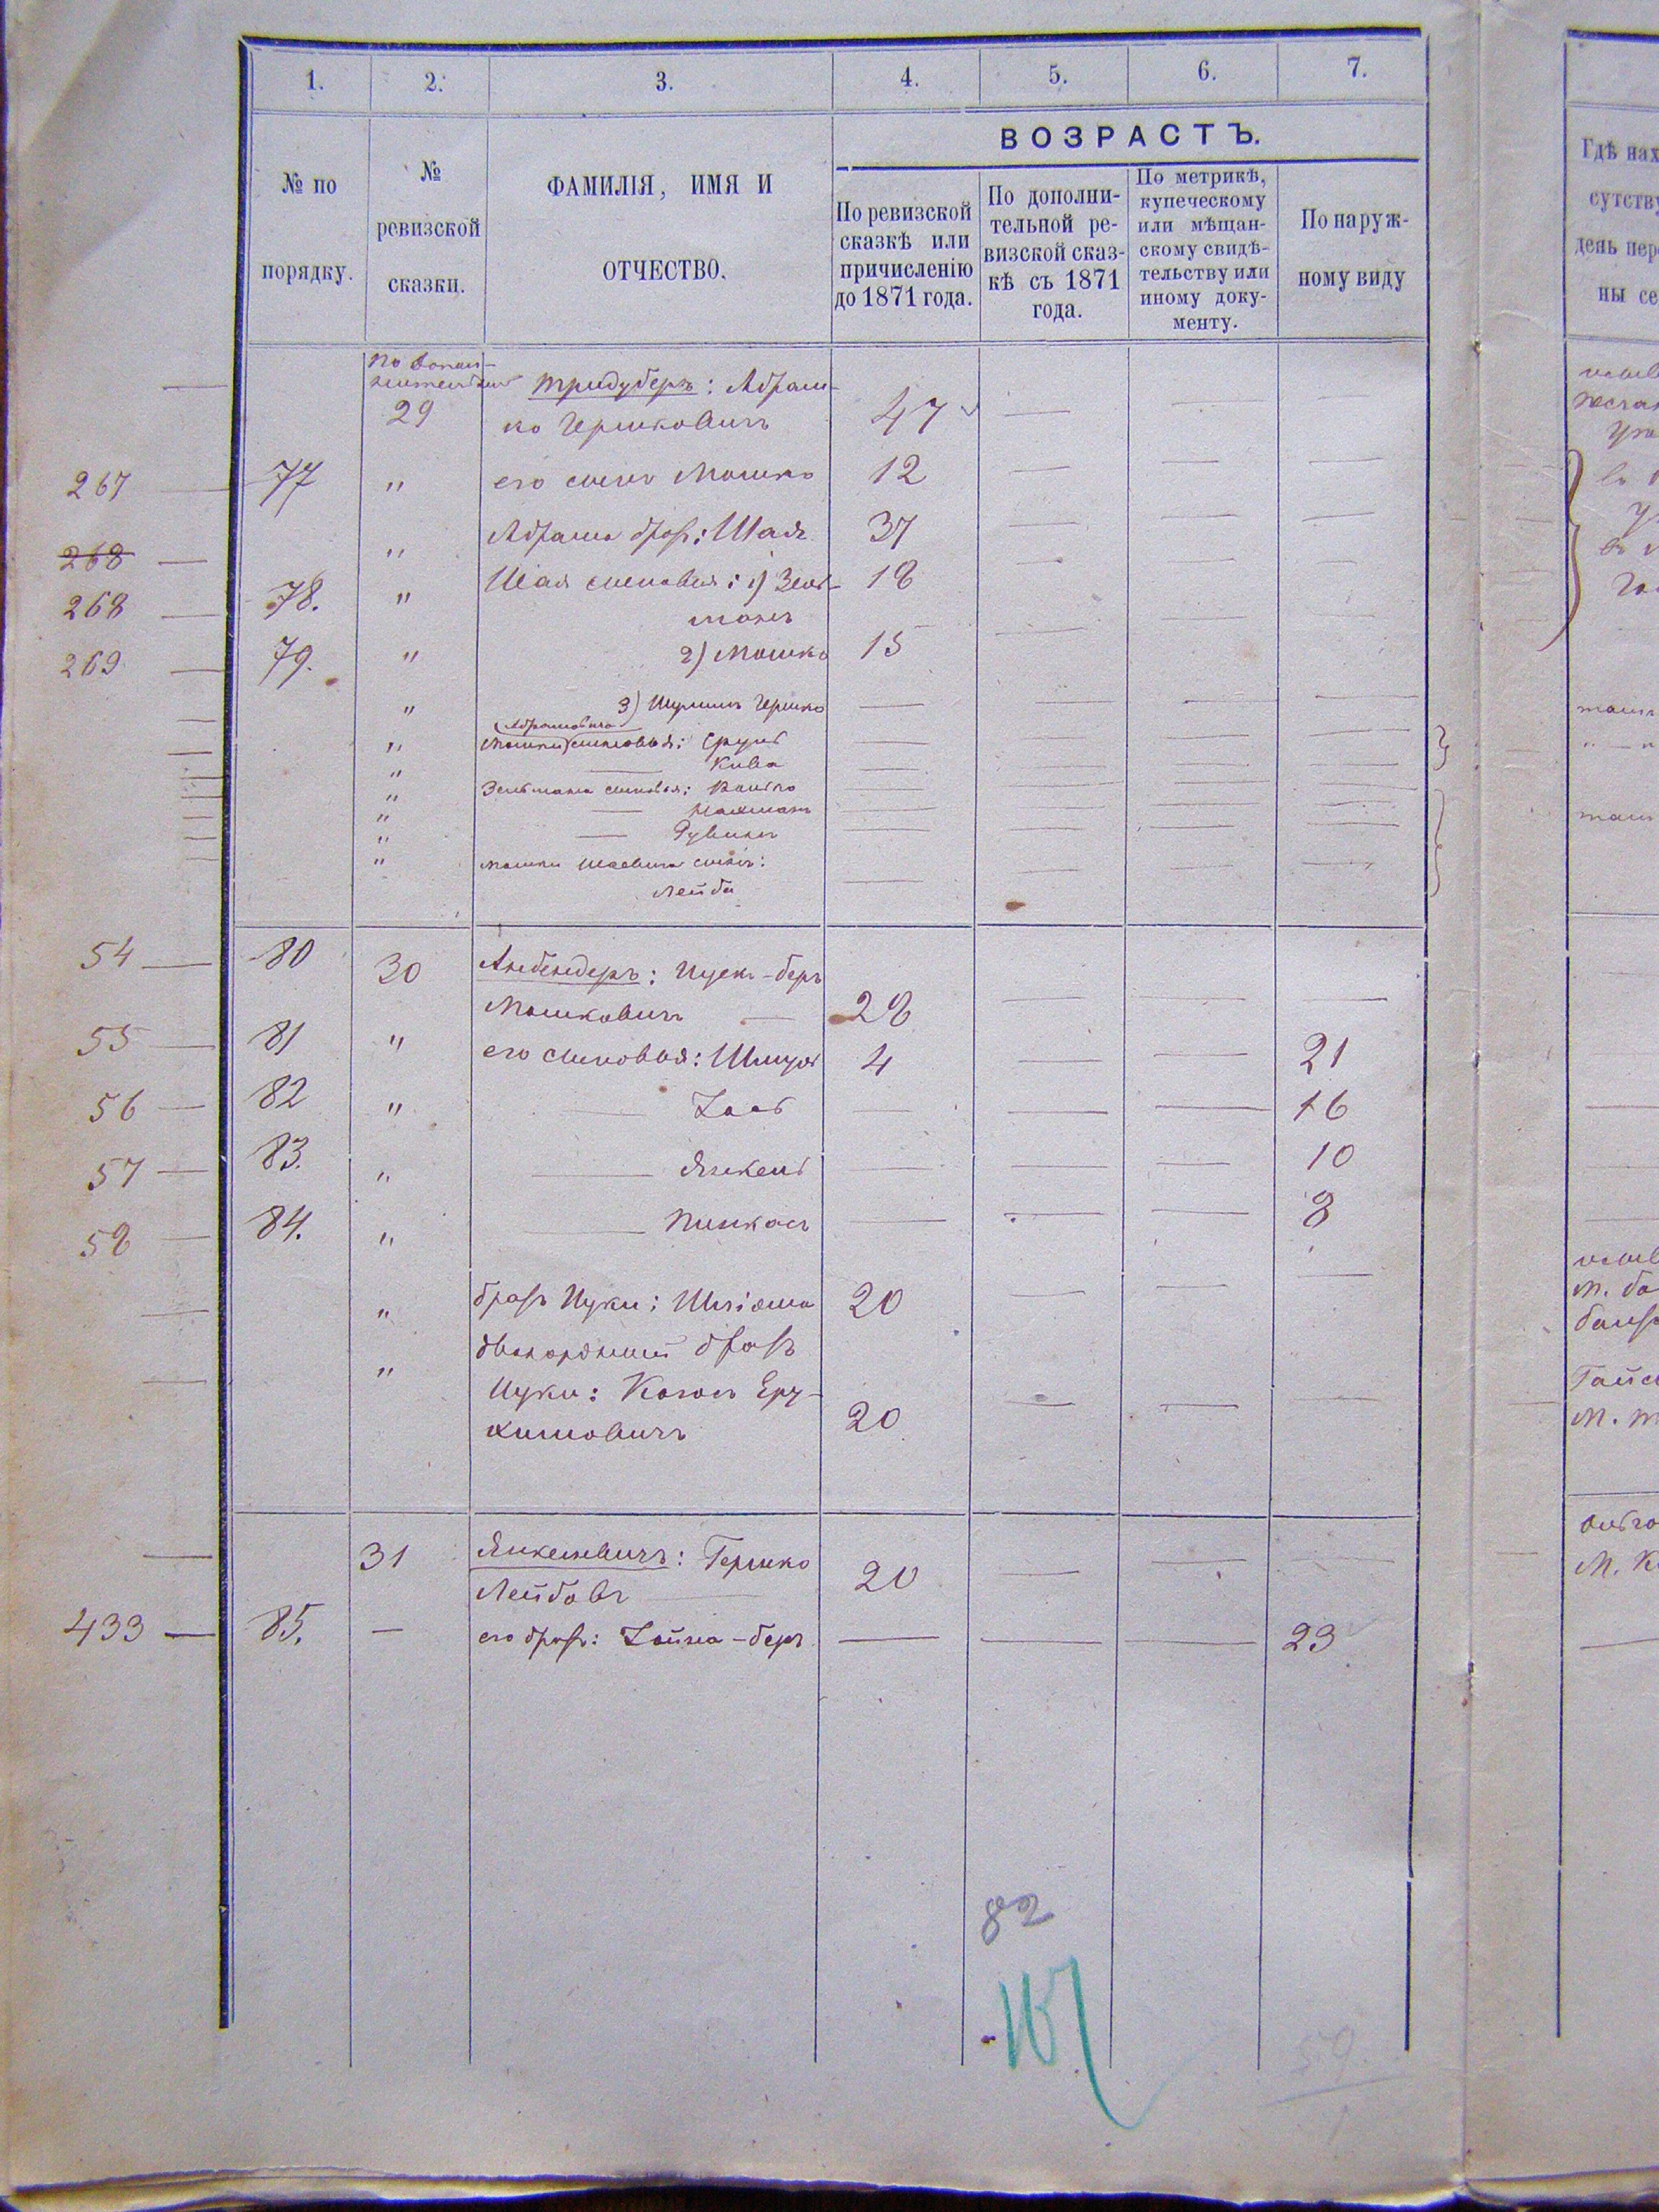 1. 2. 3. 4. 5. 6. 7.
ВОЗРАСТЪ.
№ по порядку.
№ ревизской сказки.
ФАМИЛІЯ, ИМЯ И ОТЧЕСТВО.
По ревизской сказкѣ или причисленію до 1871 года.
По дополнительной ревизской сказкѣ съ 1871 года.
По метрикѣ, купеческому или мѣщанскому свидѣтельству или иному документу.
По наружному виду
Гдѣ нах
сутству
день пер
ны се
29 Тридуберъ: Абраш-
ко Гершковичъ 47 — — —
267 — 77 " его сынъ Мошко 12 — — —
268 — " Абрама братъ: Шая 37 — — —
268 — 78. " Шая сыновья: 1) Зель- 18 — — —
манъ
269 — 79. " 2) Мошко 15 — — —
" 3) Шулимъ Гершко — — — —
Абрамовича
" Мошки сыновья: Сруль — — — —
" — Кива — — — —
" Зельмана сыновья: Волько — — — —
" — Нахманъ — — — —
" — Рувинъ — — — —
" Мошки Шаевича сынъ:
Лейба — — — —
54 — 80 30 Анбендеръ: Ицек-беръ
Мошковичъ — 28 — — —
55 — 81 " его сыновья: Шмуль 4 — — 21
56 — 82 " — Хаст — — — 16
57 — 83. " — Янкель — — — 10
58 — 84. " — Пинкасъ — — — 8
— " братъ Ицки: Шліома 20 — — —
— " двоюродный братъ
Ицки: Когосъ Еру-
химовичъ 20 — — —
— 31 Янкелевичъ: Гершко
Лейбовъ — 20 — — —
433 — 85. — его братъ: Хайма-беръ — — — 23
82
107
59